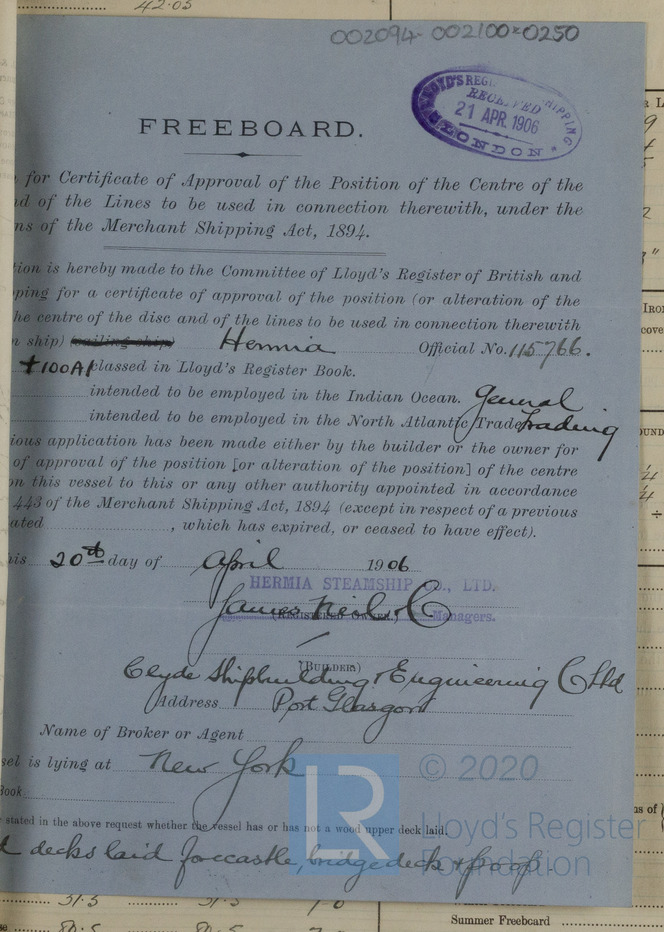 42.05
002094-002100-0250
LLOYD'S REGISTER SHIPPING
RECEIVED
21 APR. 1906
LONDON
FREEBOARD.
for Certificate of Approval of the Position of the Centre of the
nd of the Lines to be used in connection therewith, under the
ns of the Merchant Shipping Act, 1894.
tion is hereby made to the Committee of Lloyd's Register of British and
pping for a certificate of approval of the position (or alteration of the
he centre of the disc and of the lines to be used in connection therewith
n ship) sailing ship) Hermia Official No. 115766.
+100A1 classed in Lloyd's Register Book.
intended to be employed in the Indian Ocean. General
intended to be employed in the North Atlantic Trade Trading
ious application has been made either by the builder or the owner for
of approval of the position [or alteration of the position] of the centre
on this vessel to this or any other authority appointed in accordance
443 of the Merchant Shipping Act, 1894 (except in respect of a previous
ated , which has expired, or ceased to have effect).
his 20th day of April 1906
HERMIA STEAMSHIP CO., LTD.
James Neil & Co
(REGISTERED OWNER.) Managers.
(BUILDER)
Clyde Shipbuilding & Engineering Co Ltd
Address Port Glasgow
Name of Broker or Agent
sel is lying at New York
Book
© 2020
LR
Lloyd's Register
Foundation
stated in the above request whether the vessel has or has not a wood upper deck laid.
d decks laid forecastle, bridge deck & poop.
Summer Freeboard